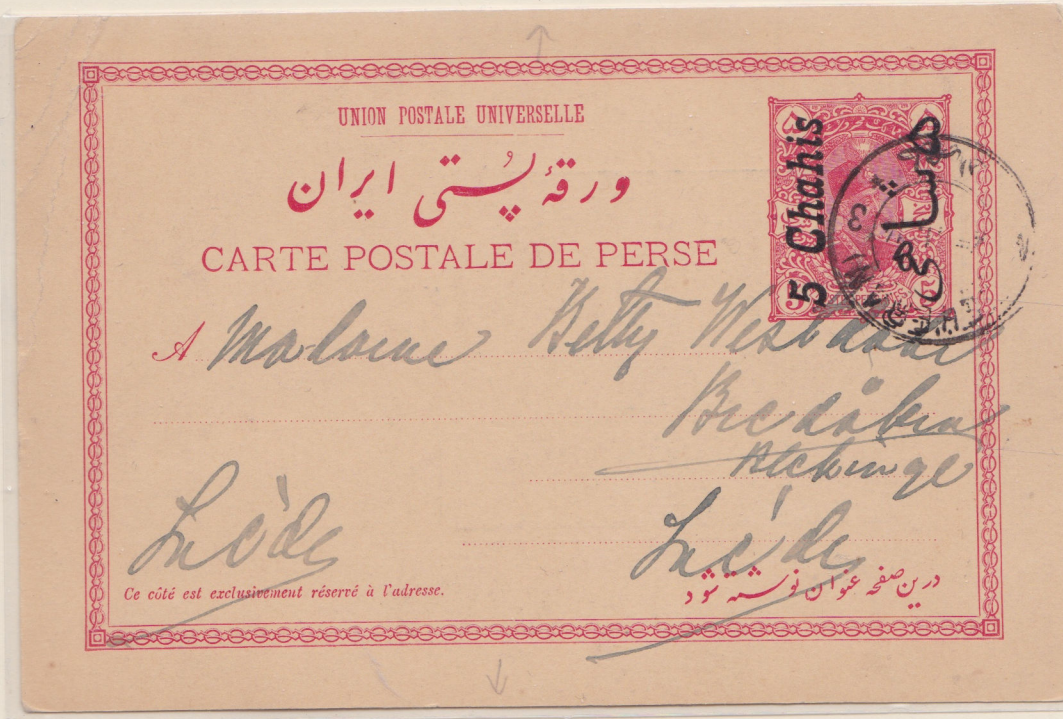 UNION POSTALE UNIVERSELLE
ورقهٔ پُستی ایران
CARTE POSTALE DE PERSE
5 Chahis
۵ شاهی
A Madame Betty
Blekinge
Suède Suède
Ce côté est exclusivement réservé à l'adresse.
درین صفحه عنوان نوشته شود